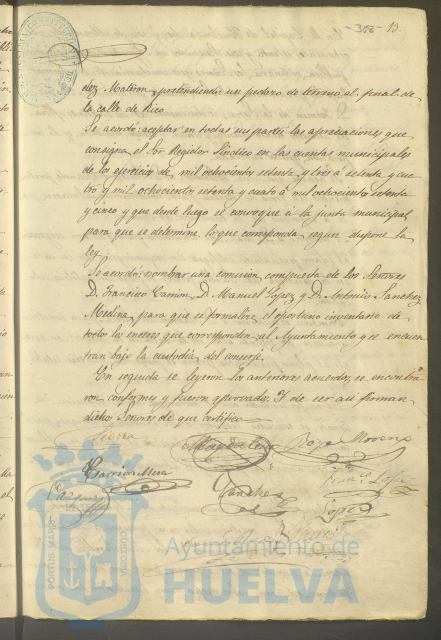 -308- 13.
dez Matron, pretendiendo un pedazo de terreno al final de
la calle de Rico
Se acordó: aceptar en todas sus partes las apreciaciones que
consigna el Sor Regidor Síndico en las cuentas municipales
de los ejercicios de mil ochocientos setenta y tres á setenta y cua
tro y mil ochocientos setenta y cuatro á mil ochocientos setenta
y cinco y que desde luego se convoque á la junta municipal
para que se determine lo que corresponda segun dispone la
ley.
Se acordó: nombrar una comision compuesta de los Señores
D. Francisco Carrion, D. Manuel Lopez y D. Antonio Sanchez
Medina, para que se formalice el oportuno inventario de
todos los enseres que corresponden al Ayuntamiento y se encuen
tran bajo la custodia del conserje.
En seguida se leyeron los anteriores acuerdos, se encontra
ron conformes y fueron aprobados. Y de ser así firman
dichos Señores de que certifico.
Moreno
Carrion Mera
Sanchez
Lopez
PORTUS MARIS
CUSTODIA
Ayuntamiento de
HUELVA